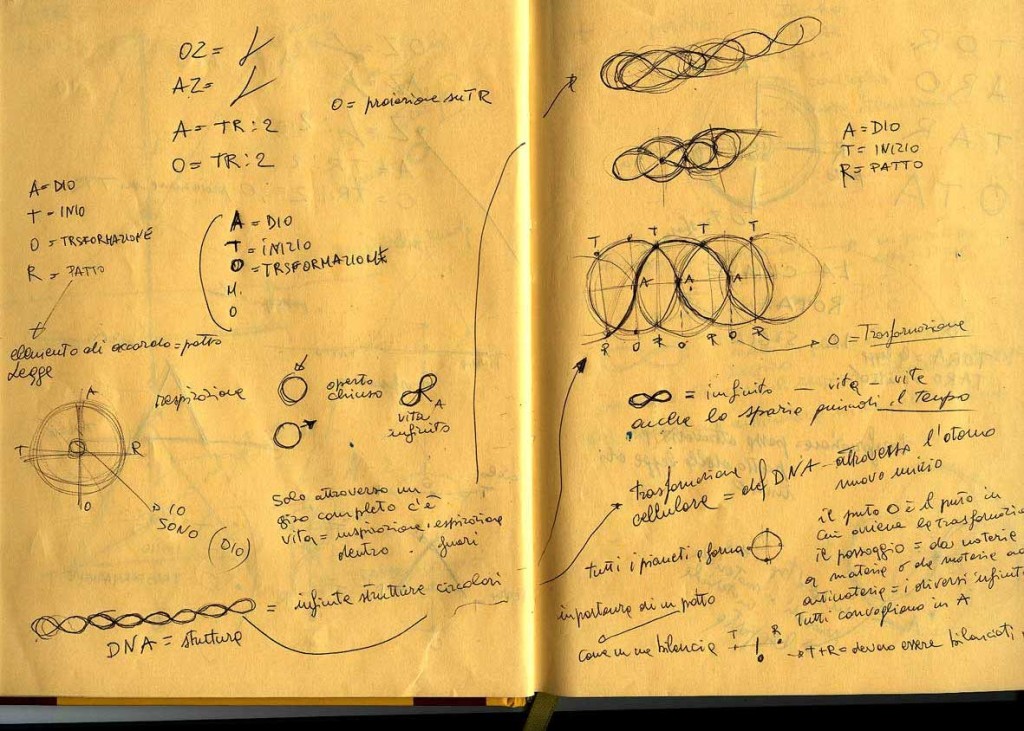 OZ =
AZ =
O = proiezione su TR
A = TR : 2
O = TR : 2
A = DIO
T = INIO
O = TRSFORMAZIONE
R = PATTO
A = DIO
T = INIZIO
O = TRSFORMAZIONE
M.
O
elemento di accordo = patto
Legge
respirazione
aperto
chiuso
A
vita
infinito
A
T
R
O
IO
SONO
(DIO)
Solo attraverso un
giro completo c'è
vita = inspirazione, espirazione
dentro . fuori
= infinite strutture circolari
DNA = struttura
A = DIO
T = INIZIO
R = PATTO
T T T T
A A A
R O R O R O R
O = Trasformazione
= infinito — vita — vite
anche lo spazio quindi il Tempo
trasformazione
cellulare = del DNA - attraverso l'atomo
nuovo inizio
il puto O è il puto in
cui avviene la trasformazio
il passaggio = da materia
a materia o da materia ad
antimateria = i diversi infiniti
tutti convogliano in A
tutti i pianeti a forma
importanza di un patto
come in una bilancia T R
O
T+R = devono essere bilanciati,